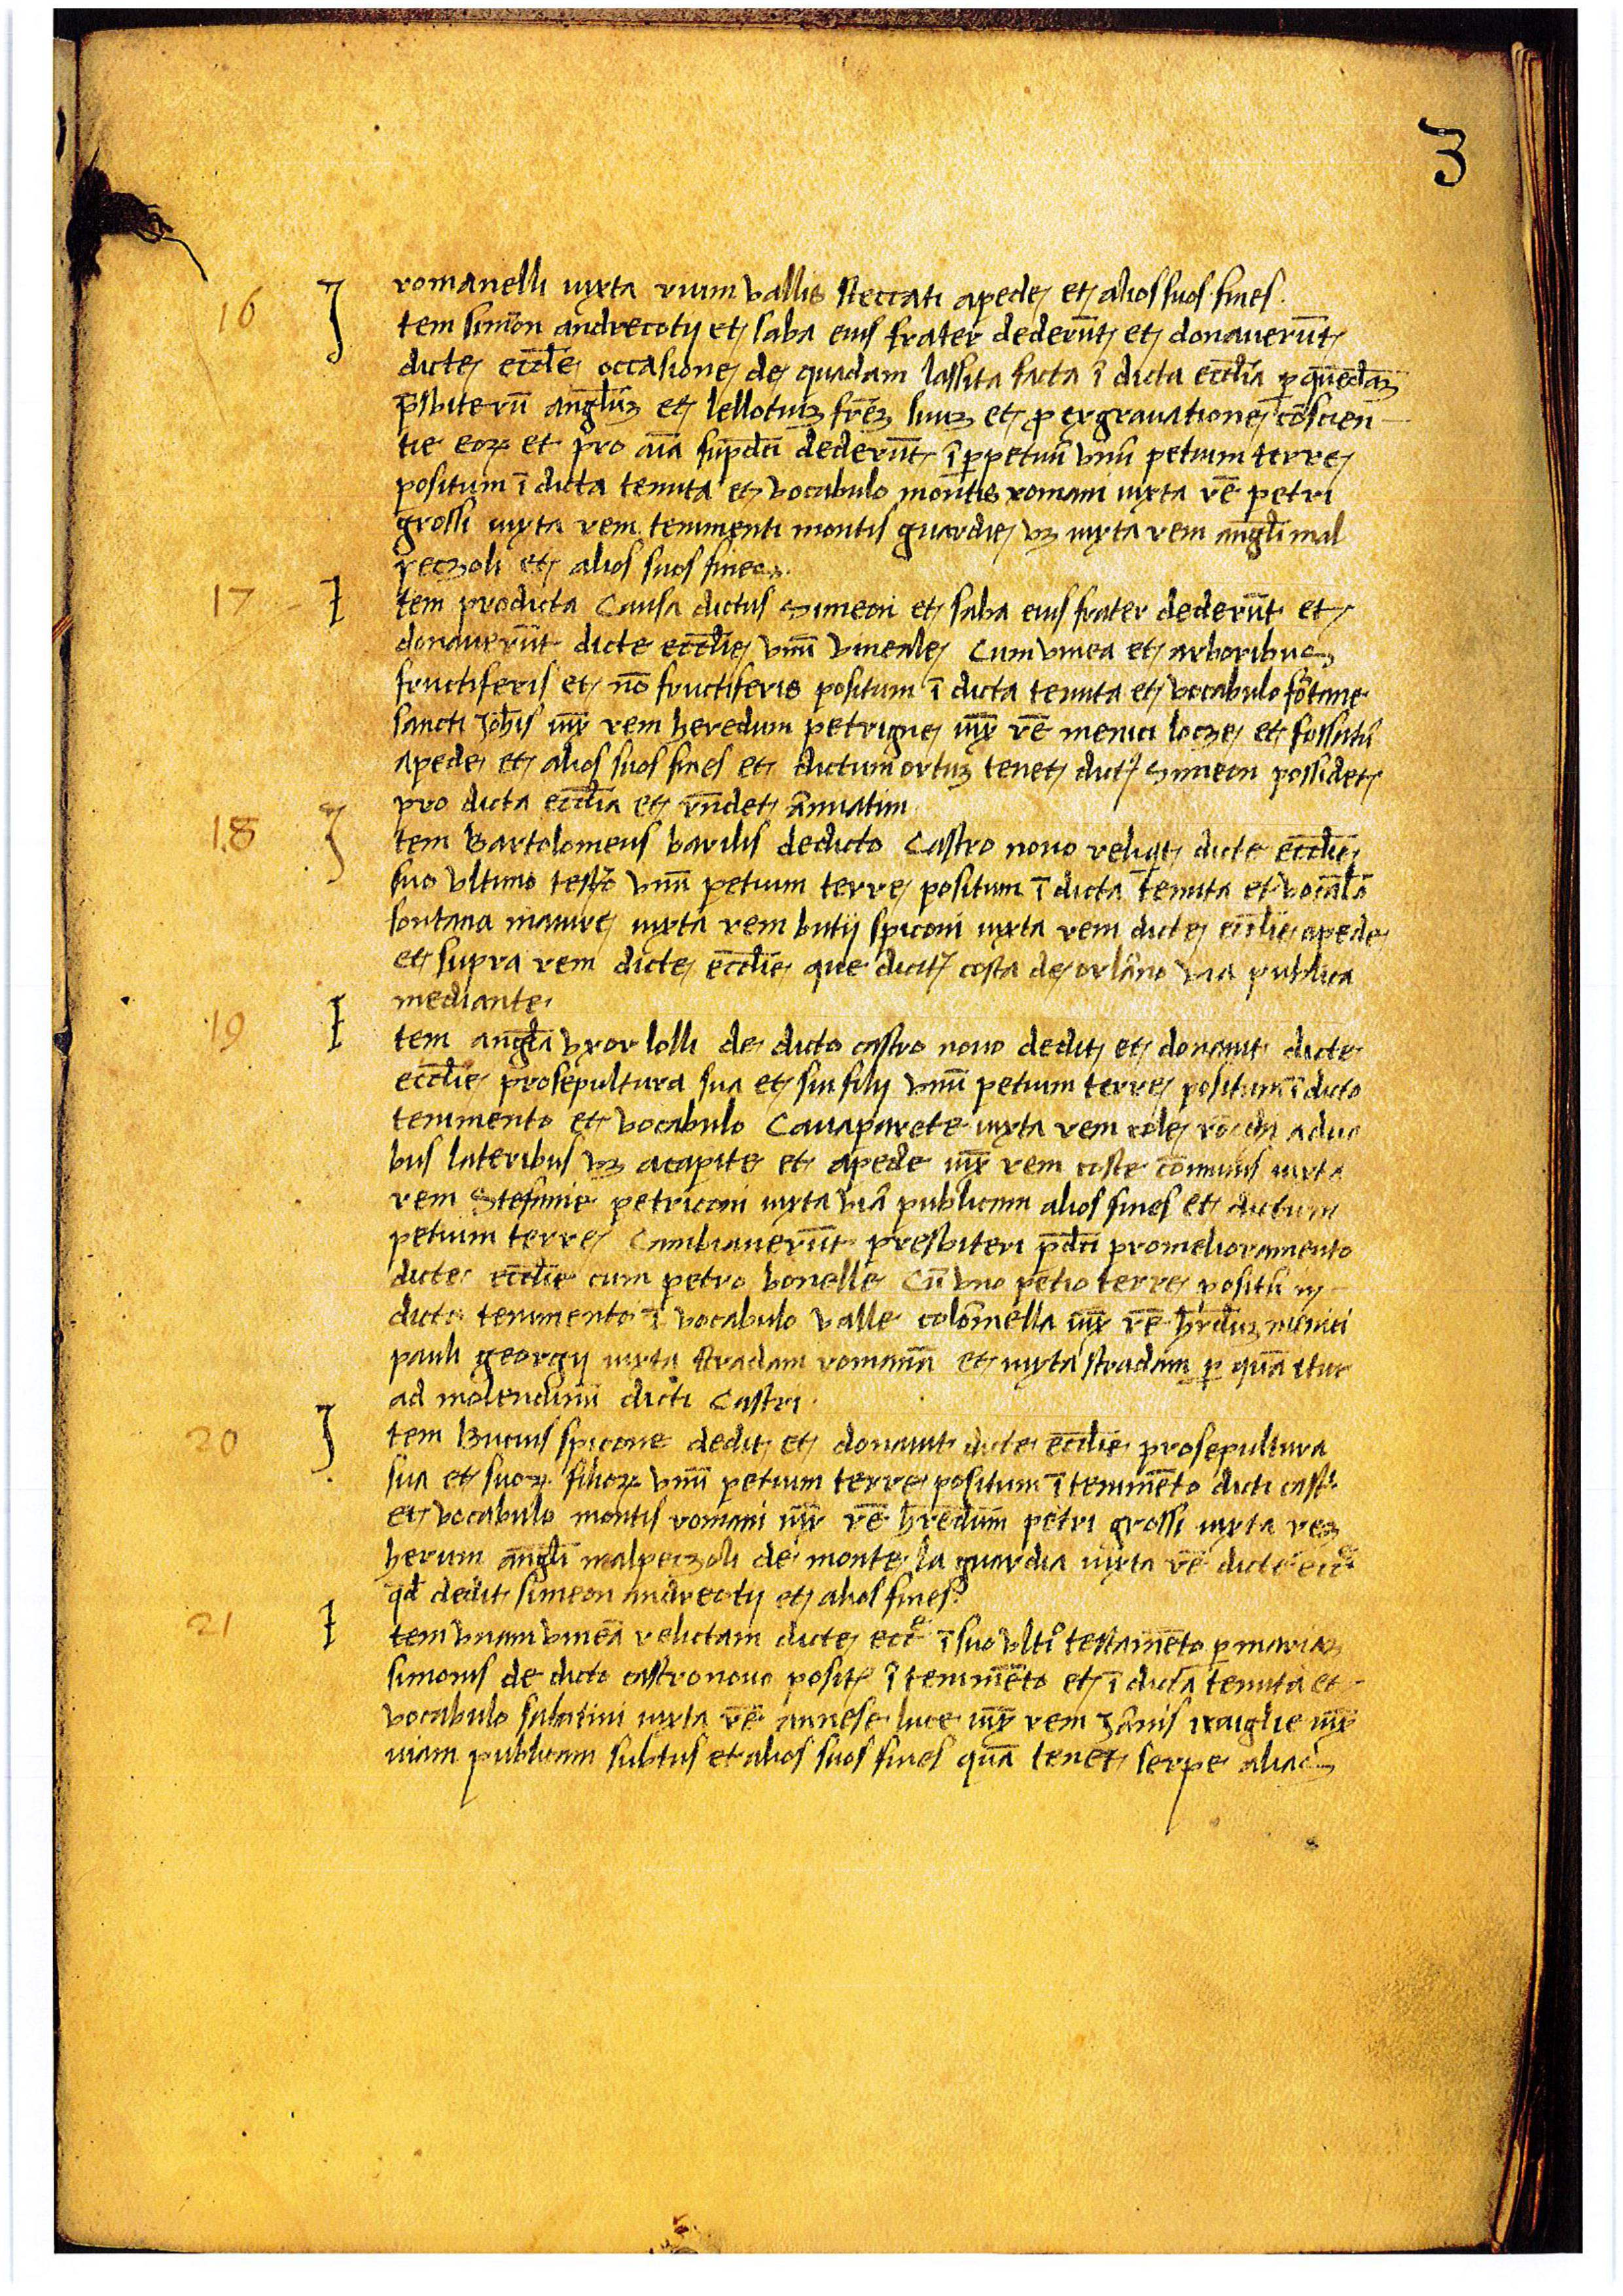 3
romanelli iuxta riuum vallis steccati apede et alios suos fines.
16 Item simōn andrecotij et saba eius frater dederūt et donauerūt
dicte ecclie occasione de quadam lassita facta ī dicta ecclia p quēdaz
p̄sbiterū anglūz et lellotiuz frēz suuz et p exgrauatione cōscien
tie eoꝝ et pro aīa sup̄dcī dederūt ī ppetuū vnū petium terre
positum ī dicta tenuta et vocabulo montis romani iuxta rē petri
grossi iuxta rem tenimenti montis guardie vz iuxta rem angli mal
peczoli et alios suos fines.
17 Item pro dicta Causa dictus Simeon et saba eius frater dederūt et
donauerūt dicte ecclie vnū vineale Cum vinea et arboribus
fructiferis et nō fructiferis positum ī dicta tenuta et vocabulo fōtane
sancti Johīs iux̄ rem heredum petrigne iux̄ rē menici locze et fossatū
apede et alios suos fines et dictum ortuz tenet dict⁹ Simeon possidet
pro dicta ecclia et rn̄det ānuatim
18 Item Bartolomeus barilis dedicto Castro nouo reliqt dicte ecclie
suo vltimo testō vnū petium terre positum ī dicta tenuta et vocablō
fontana maiure iuxta rem butij spiconi iuxta rem dicte ecclie apede
et supra rem dicte ecclie que dicit² costa de orlāno via publica
mediante
19 Item angla vxor lolli de dicto castro nouo dedit et donauit dicte
ecclie pro sepultura sua et sui filij vnū petium terre positum ī dicto
tenimento et vocabulo Cauaparete iuxta rem cole rocchi a duo
bus lateribus vz acapite et apede iux̄ rem coste cōmunis iuxta
rem Stefanie petriconi iuxta viā publicam alios fines et dictum
petium terre Cambiauerūt presbiteri p̄dcī pro melioramento
dicte ecclie cum petro bonelle Cū vno petio terre positū in
dicto tenimento ī vocabulo valle colōnella iux̄ rē hr̄duz menici
pauli georgij iuxta stradam romanā et iuxta stradam p quā itur
ad molendinū dicti Castri.
20 Item Bucius spicone dedit et donauit dicte ecclie pro sepultura
sua et suoꝝ filioꝝ vnū petium terre positum ī tenimēto dicti castⁱ
et vocabulo montis romani iux̄ rē hr̄edum petri grossi iuxta rez
herum angli malpeczoli de monte la guardia iuxta rē dicte ecce
qd dedit simeon andrecotij et alios fines
21 Item vnam vineā relictam dicte ecce ī suo vltiº testamēto p mariaz
simonis de dicto castro nouo posit² ī tenimēto et ī dicta tenuta et
vocabulo sabatini iuxta rē annese luce iux̄ rem Jānis iux̄
uiam publicam subtus et alios suos fines quā tenet serpe alias